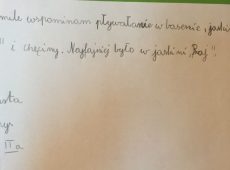 mile wspominam pływałanie w basenie, jaskini
" i chęciny. Najfajniej było w jaskini „Raj".
IIa